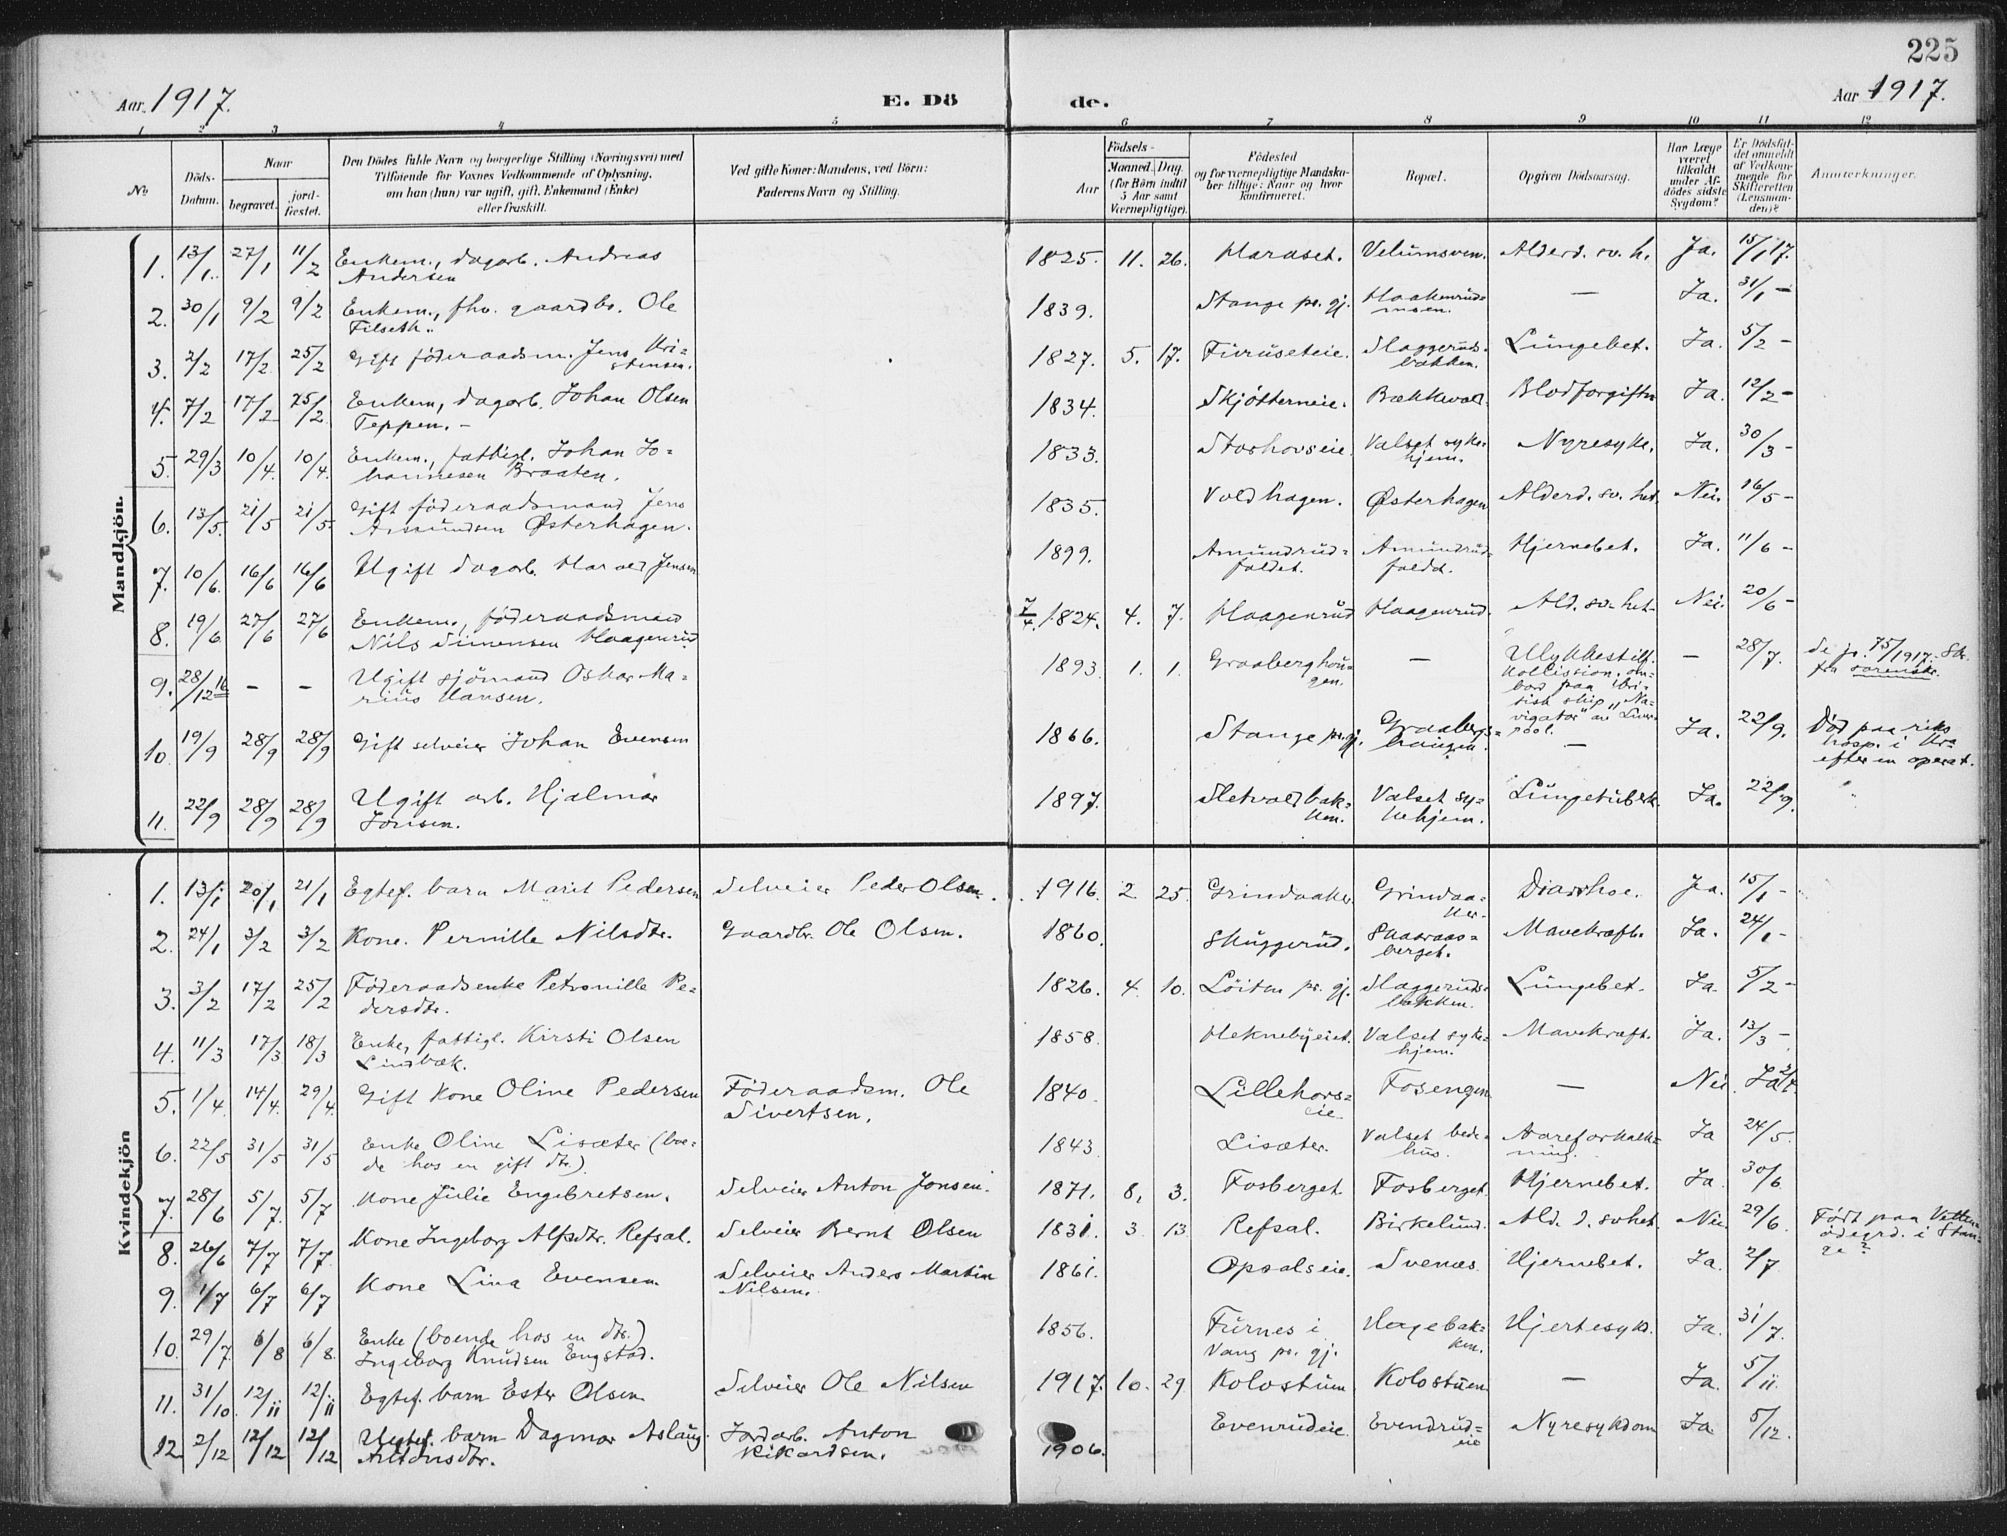 225
Aar 1917. E. Dö de. Aar 1917.
1 2 3 4 5 6 7 8 9 10 11 12
No
Döds-Datum.
Naar
begravet.
jord-fæstet.
Den Dödes fulde Navn og borgerlige Stilling (Næringsvei) med
Tilföiende for Voxnes Vedkommende af Oplysning,
om han (hun) var ugift, gift, Enkemand (Enke)
eller fraskilt.
Ved gifte Koner: Mandens, ved Börn:
Faderens Navn og Stilling.
Födsels-
Aar
Maaned. Dag.
(for Börn indtil
5 Aar samt
Værnepligtige).
Födested
og for værnepligtige Mandska-
ber tillige: Naar og hvor
konfirmeret.
Bopæl.
Opgiven Dödsaarsag.
Har Læge
været
tilkaldt
under Af-
dödes sidste
Sygdom?
Er Dödsfal-
det anmeldt
af Vedkom-
mende for
Skifteretten
(Lensman-
den)?
Anmærkninger.
Mandkjön.
1. 13/1. 27/1 11/2 Enkem., dagarb. Andreas
Andersen 1825. 11. 26. Haraset. Velumsven. Alderd. sv. h. Ja. 15/1 17.
2. 30/1 9/2 9/2 Enkem., fhv. gaardbr. Ole
Filseth. 1839. Stange pr. gj. Haakenrud-
moen. — Ja. 31/1 –
3. 2/2 17/2 25/2 Gift föderaadsm. Jens Kri-
stensen. 1827. 5. 17. Furuseteie. Slaggeruds-
bakken. Lungebet. Ja. 5/2 –
4. 7/2 17/2 25/2 Enkem., dagarb. Johan Olsen
Teppen. – 1834. Skjötterneie. Bækkevol. Blodforgiftn Ja. 12/2 –
5. 29/3 10/4. 10/4. Enkem., fattigl. Johan Jo-
hannesen Braaten. 1833. Storhovseie. Valset syke-
hjem. Nyresyke. Ja. 30/3 –
6. 13/5. 21/5 21/5. Gift föderaadsmand Jens
Amundsen Østerhagen. 1835. Voldhagen. Østerhagen Alderd. sv. het. Nei. 16/5 –
7. 10/6. 16/6 16/6 Ugift dagarb. Harald Jensen 1899. Amundrud-
faldet. Amundrud-
faldet. Hjernebet. Ja. 11/6 –
8. 19/6 27/6 27/6 Enkem., föderaadsmand
Nils Simensen Haagenrud 7/4. 1824. 4. 7. Haagenrud Haagenrud. Ald. sv. het. Nei. 20/6 –
9. 28/12 16 – – Ugift sjömand Oskar Ma-
rius Hansen. 1893 1. 1. Graaberghau-
gen. — Ulykkestilf.
Kollission, om-
bord paa bri-
tisk skip "Na-
vigator" av Liver-
pool. — 28/7. 75/1917. Sk.
fra sorenskr.
10. 19/9 28/9 28/9 Gift selveier Johan Evensen 1866. Stange pr. gj. Graabergs-
haugen. — Ja. 22/9. Död paa riks
hosp. i Kra
efter en operat.
11. 22/9 28/9 28/9 Ugift arb. Hjalmar
Jonsen. 1897. Sletvoldbak-
ken. Valset sy-
kehjem. Lungetuberk. Ja. 22/9.
Kvindekjön
1. 13/1 20/1 21/1 Egtef. barn Marit Pedersen Selveier Peder Olsen. 1916 2 25. Grindaaker Grindaa-
ker. Diarrhoe. Ja. 15/1 –
2. 24/1 3/2 3/2 Kone. Pernille Nilsdtr. Gaardbr. Ole Olsen. 1860. Skuggerud. Skaaraas-
berget. Mavekræft. Ja. 24/1 –
3. 3/2 17/2 25/2 Föderaadsenke Petronille Pe-
dersdtr. 1826. 4. 10. Löiten pr. gj. Slaggeruds-
bakken. Lungebet. Ja. 5/2 –
4. 11/3 17/3 18/3 Enke, fattigl. Kirsti Olsen
Lindbæk. 1858. Heknebyeiet. Valset syke-
hjem. Mavekræft. Ja. 13/3 –
5. 1/4. 14/4. 29/4. Gift Kone Oline Pedersen Föderaadsm. Ole
Sivertsen. 1840. Lillehovs-
eie. Fosengen — Nei. Ja 2/4.
6. 22/5 31/5 31/5 Enke Oline Lisæter (bo-
de hos en gift dtr.). 1843. Lisæter. Valset bede-
hus. Aareforkalk-
ning. Ja 24/5.
7. 28/6 5/7. 5/7 Kone Julie Engebretsen. Selveier Anton Jonsen. 1871. 8. 3. Fosberget. Fosberget. Hjernebet. Ja. 30/6
8. 26/6 7/7 7/7. Kone Ingeborg Alfsdtr. Refsal. Selveier Bernt Olsen 1831. 3. 13. Refsal. Birkelund. Ald. d. svhet. Nei. 29/6. Født paa Vetten
ödegrd. i Stan-
ge?
9. 1/7 6/7 6/7 Kone Lina Evensen Selveier Anders Martin
Nilsen. 1861. Opsalseie. Svenæs. Hjernebet. Ja. 2/7
10. 29/7. 6/8 6/8. Enke (boende hos en dtr.)
Ingeborg Knudsen Engstad. 1856. Furnes i
Vang pr. gj. Hagebak-
ken. Hjertesyk. Ja. 31/7.
11. 31/10. 12/11 12/11 Egtef. barn Ester Olsen Selveier Ole Nilsen 1917. 10. 29. Kolostuen Kolostuen. — Ja. 5/11.
12. 2/12 12/12 12/12 Uegtef. barn Dagmar Aslaug
Antonsdtr. Jordarb. Anton
Rikardsen. 1906. Evenrudeie Evendrud-
eie Nyresykdom Ja. 5/12.